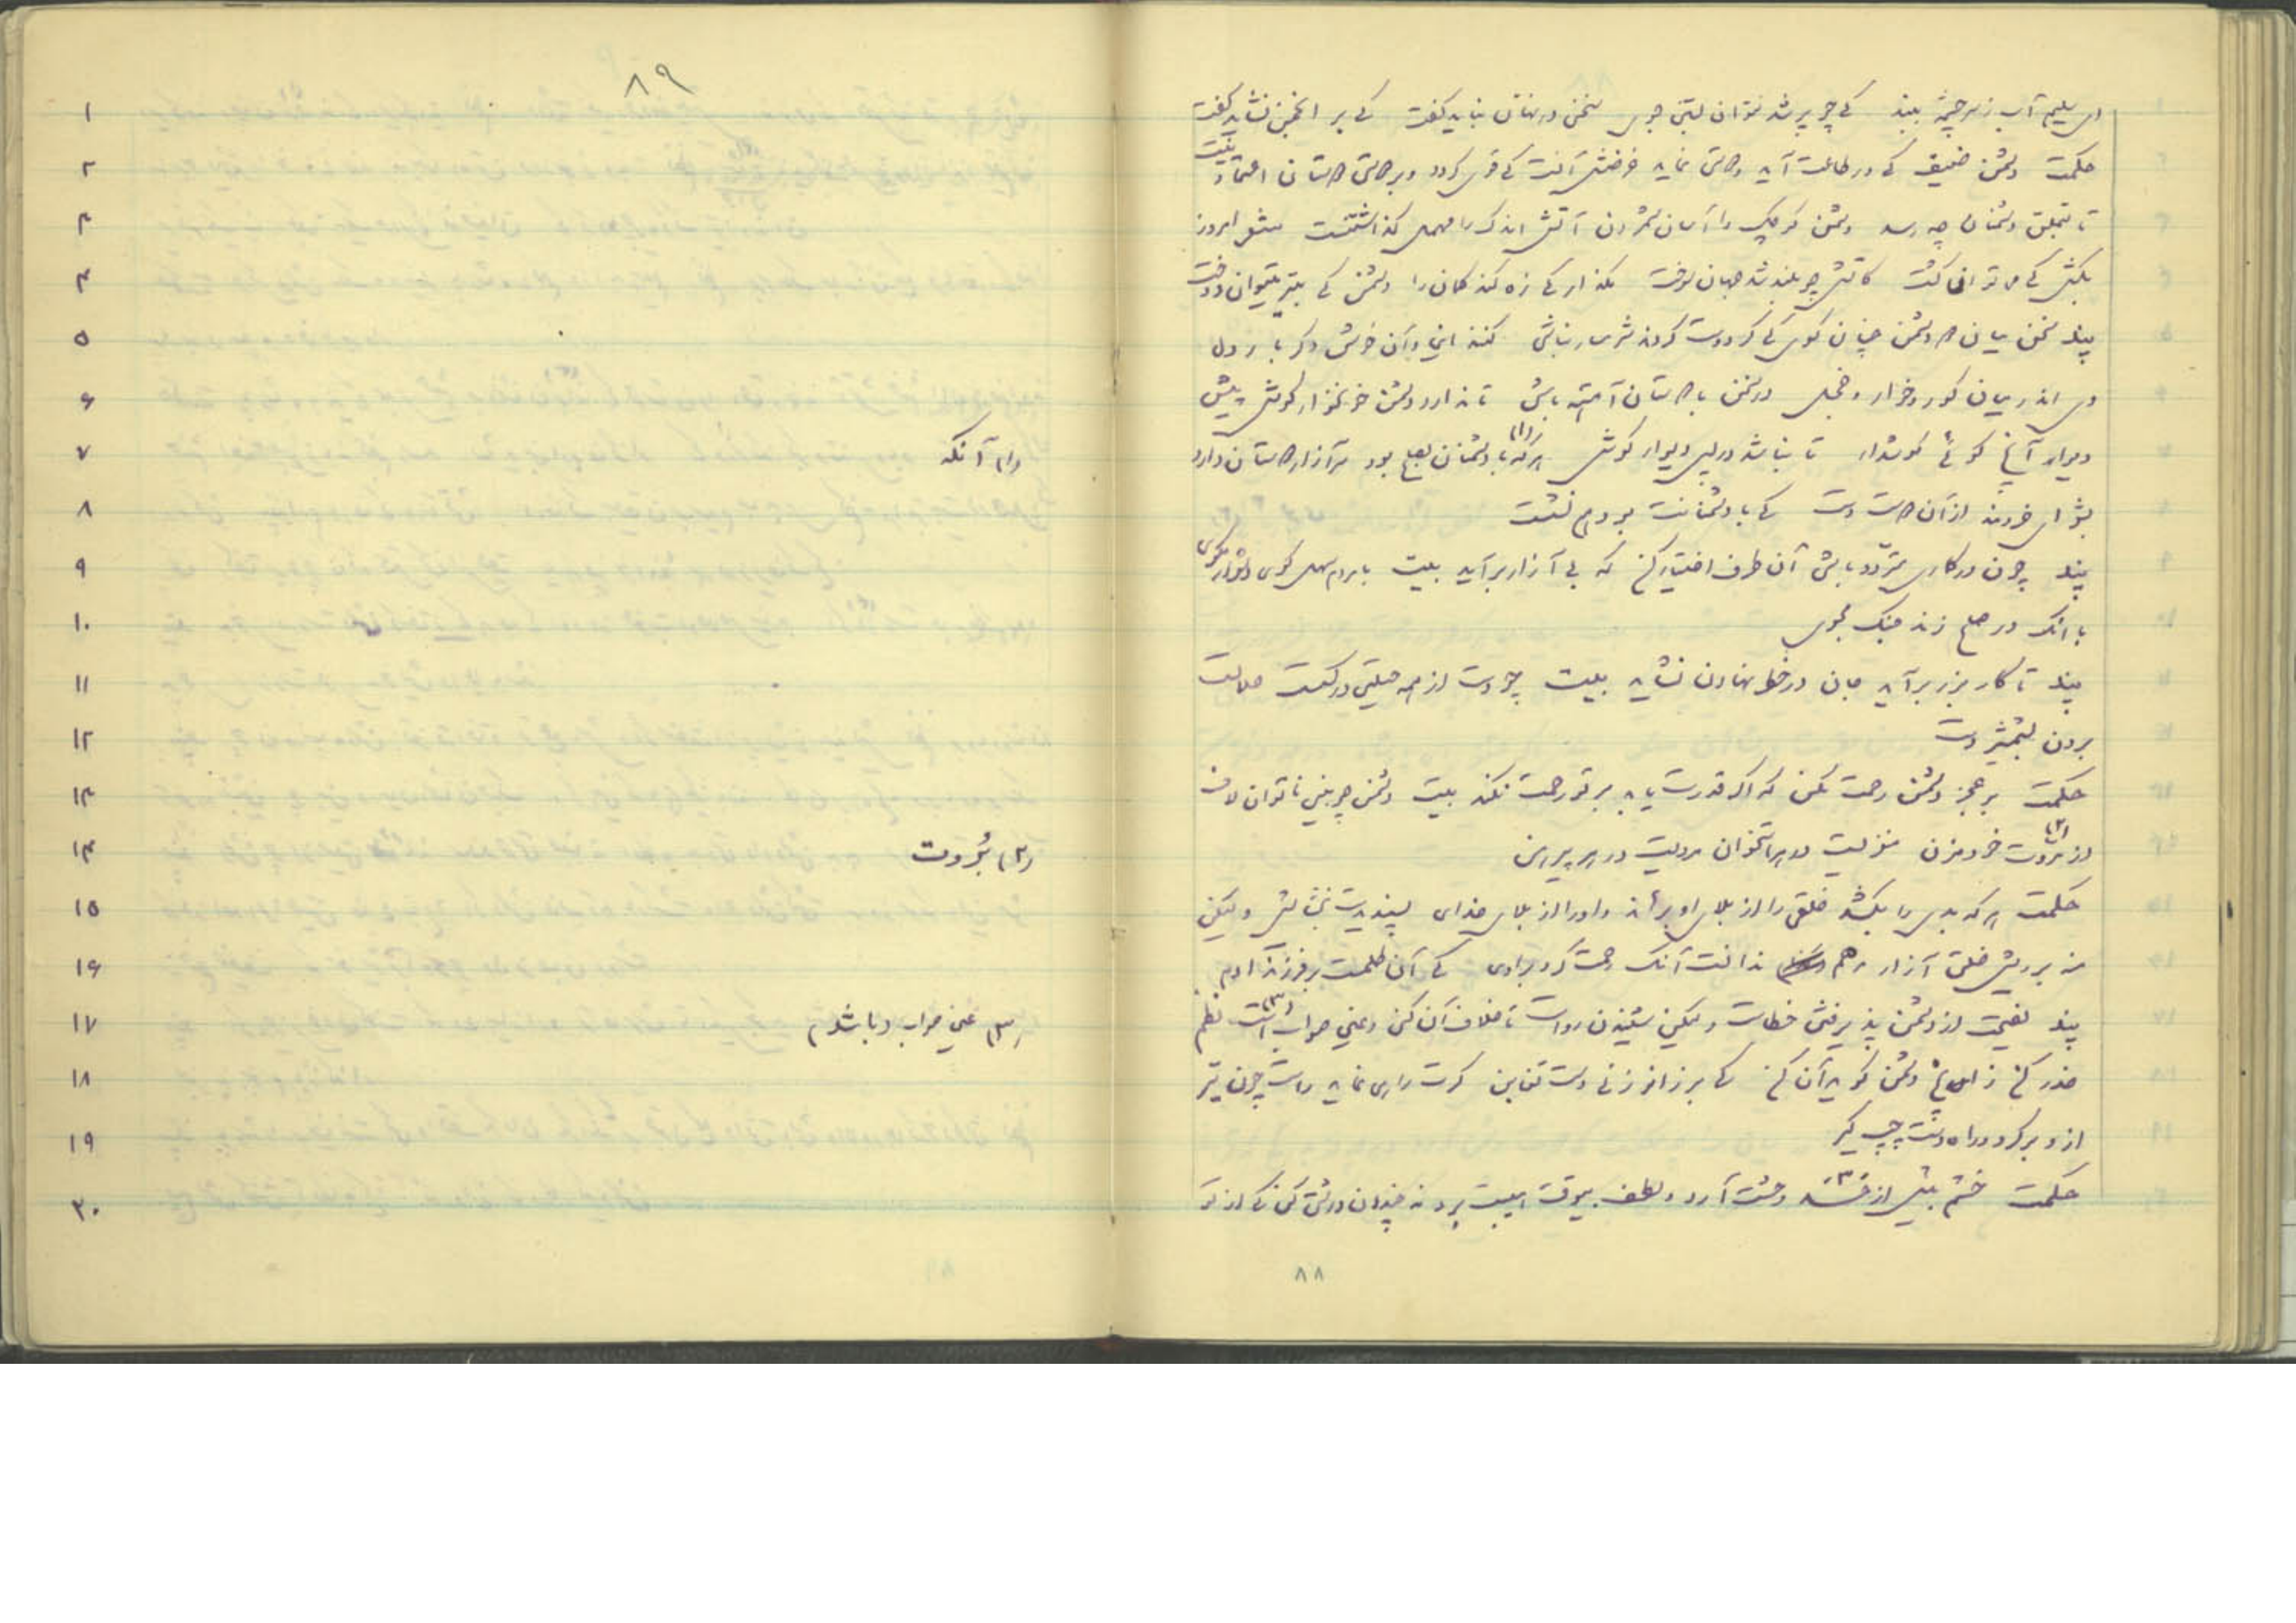 ای سلیم آب ز سرچشمه ببند کی چو پر شد نتوان بستن جوی سخن در نهان نباید گفت کی بر انجمن نشاید گفت
حکمت دشمن ضعیف کی در طاعت آید و دوستی نماید غرضش آنست کی قوی گردد و بر دوستی دوستان اعتماد نیست
تا بتملق دشمنان چه رسد دشمن کوچک را آسان شمردن آتش اندک را مهمل گذاشتنست شعر امروز
بکش کی می توان کشت کاتش چو بلند شد جهان سوخت مگذار کی زه کند کمان را دشمن کی بتیر میتوان دوخت
پند سخن میان دو دشمن چنان گوی کی گر دوست گردند شرمسار نباشی کنند این و آن خوش دگر باره دل
وی اندر میان کور و خوار و خجل در سخن با دوستان آهسته باش تا ندارد دشمن خونخوار گوش پیش
دیوار آنچ گوئی گوشدار تا نباشد در پس دیوار گوش هرکه (۱) با دشمنان بصلح بود سر آزار دوستان دارد
بشو ای خردمند از آن دوست دست کی با دشمنانت بود هم نشست
پند چون در کاری متردد باشی آن طرف اختیار کن که بی آزار برآید بیت با مردم سهل گوی دشوار مگوی
با انک در صلح زند جنگ مجوی
پند تا کار بزر برآید جان در خطر نهادن نشاید بیت چو دست از همه حیلتی در گسست حلالست
بردن بشمشیر دست
حکمت بر عجز دشمن رحمت مکن که اگر قدرت یابد بر تو رحمت نکند بیت دشمن چو بینی ناتوان لاف
از بروت (۲) خود مزن مغزیست در هر استخوان مردیست در هر پیرهن
حکمت هر که بدی را بکشد خلق را از بلای او برهاند و او را از بلای خدای پسندیدست بخشایش ولیکن
منه بر ریش خلق آزار مرهم ندانست آنک رحمت کرد بر ماری کی آن ظلمست بر فرزند آدم
پند نصیحت از دشمن پذیرفتن خطاست ولیکن شنیدن رواست تا خلاف آن کنی و عین صواب (۳) است نظم
حذر کن ز آنچ دشمن گوید آن کن کی بر زانو زنی دست تغابن گرت راهی نماید راست چون تیر
ازو برگرد و راه دست چپ گیر
حکمت خشم بیش از حد وحشت آرد و لطف بیوقت هیبت ببرد نه چندان درشتی کن کی از تو
۸۸
۸۹
۱
۲
۳
۴
۵
۶
۷ (۱) آنکه
۸
۹
۱۰
۱۱
۱۲
۱۳
۱۴ (۲) بُروت
۱۵
۱۶
۱۷ (۳) عین صواب باشد
۱۸
۱۹
۲۰